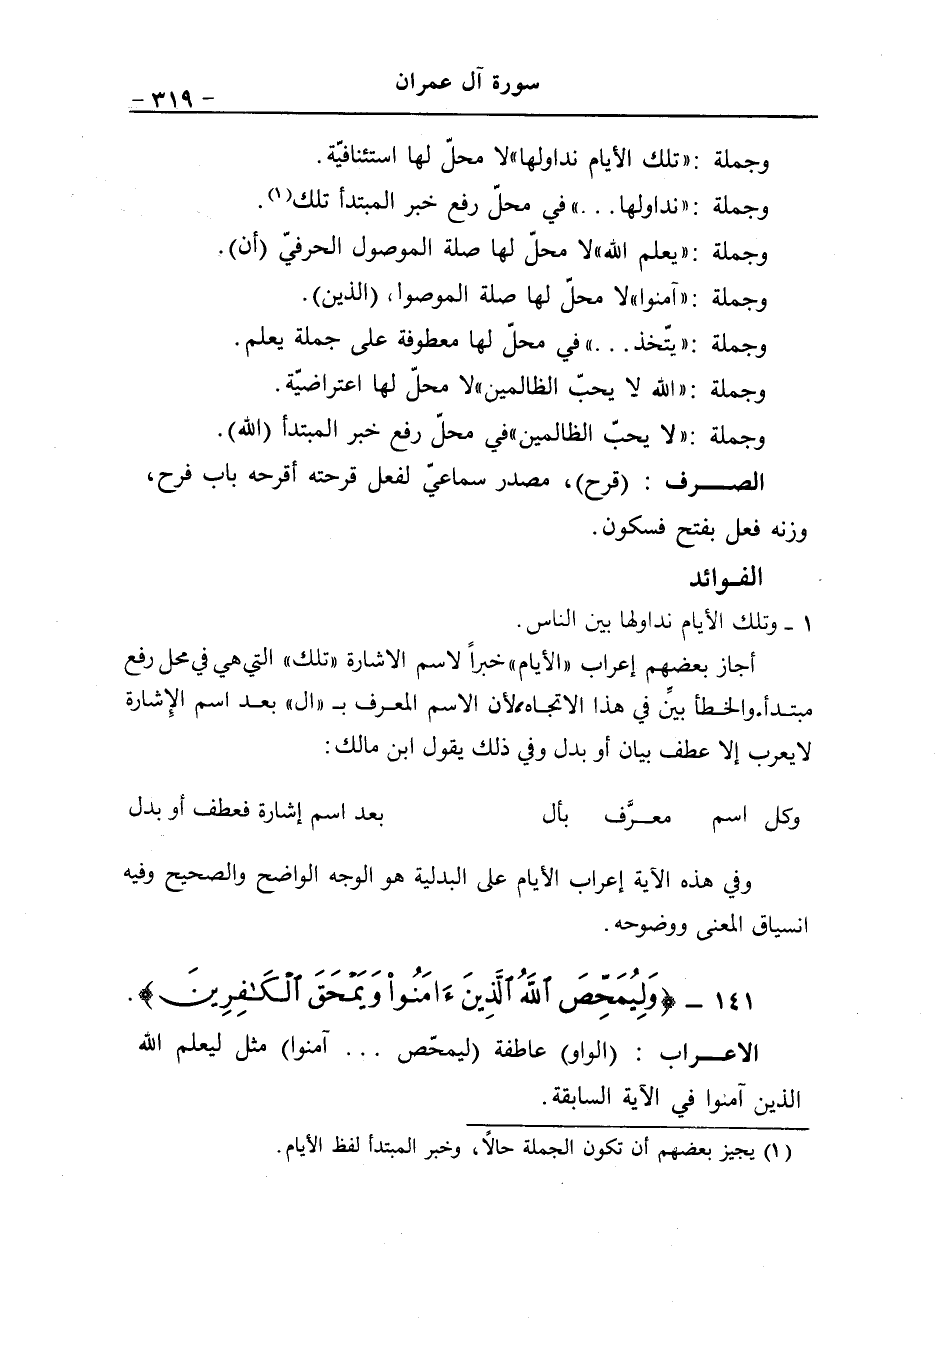 سورة آل عمران
- ٣١٩ -
وجملة : «تلك الأيام نداولها» لا محلّ لها استئنافيّة .
وجملة : «نداولها . . .» في محلّ رفع خبر المبتدأ تلك(١) .
وجملة : «يعلم الله» لا محلّ لها صلة الموصول الحرفيّ (أن) .
وجملة : «آمنوا» لا محلّ لها صلة الموصوا، (الذين) .
وجملة : «يتّخذ . . .» في محلّ لها معطوفة على جملة يعلم .
وجملة : «الله لا يحبّ الظالمين» لا محلّ لها اعتراضيّة .
وجملة : «لا يحبّ الظالمين» في محلّ رفع خبر المبتدأ (الله) .
الصـــرف : (قرح)، مصدر سماعيّ لفعل قرحته أقرحه باب فرح،
وزنه فعل بفتح فسكون .
الفـوائد
١ ـ وتلك الأيام نداولها بين الناس .
أجاز بعضهم إعراب «الأيام» خبراً لاسم الاشارة «تلك» التي هي في محل رفع
مبتدأ. والخطأ بيِّن في هذا الاتجاه، لأن الاسم المعرف بـ «ال» بعد اسم الإشارة
لا يعرب إلا عطف بيان أو بدل وفي ذلك يقول ابن مالك :
وكل اسم معـرَّف بأل بعد اسم إشارة فعطف أو بدل
وفي هذه الآية إعراب الأيام على البدلية هو الوجه الواضح والصحيح وفيه
انسياق المعنى ووضوحه .
١٤١ ـ ﴿وَلِيُمَحِّصَ ٱللَّهُ ٱلَّذِينَ ءَامَنُواْ وَيَمْحَقَ ٱلْكَـٰفِرِينَ﴾ .
الاعـــراب : (الواو) عاطفة (ليمحّص . . . آمنوا) مثل ليعلم الله
الذين آمنوا في الآية السابقة .
(١) يجيز بعضهم أن تكون الجملة حالًا، وخبر المبتدأ لفظ الأيام .